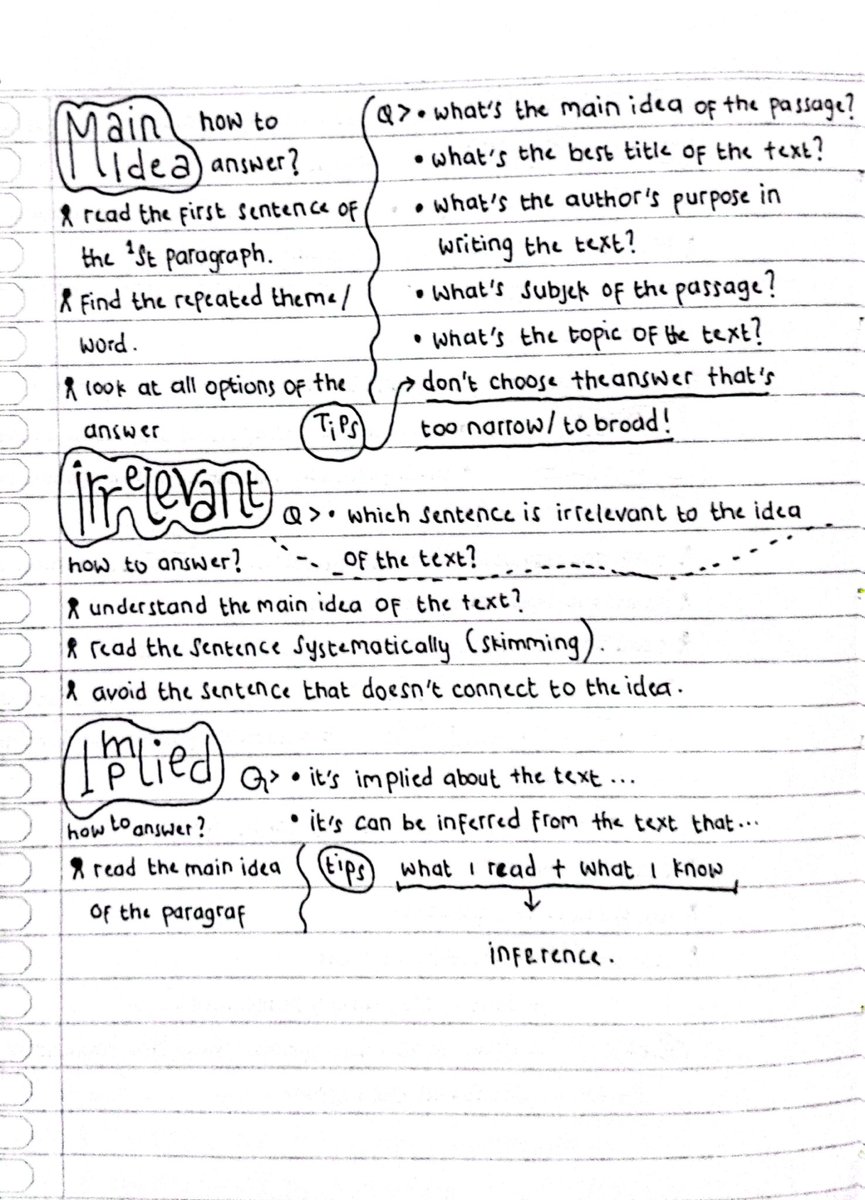 Main Idea how to answer?
ꓤ read the first sentence of
the 1st paragraph.
find the repeated theme/
word.
look at all options of the
answer
Q> • what's the main idea of the passage?
• what's the best title of the text?
• what's the author's purpose in
writing the text?
• what's subjek of the passage?
• what's the topic of the text?
Tips → don't choose the answer that's
too narrow/ to broad!
irrelevant
Q> • which sentence is irrelevant to the idea
of the text?
how to answer?
understand the main idea of the text?
read the sentence systematically (skimming).
avoid the sentence that doesn't connect to the idea.
Implied
Q> • it's implied about the text ...
• it's can be inferred from the text that...
how to answer?
read the main idea
of the paragraf
tips what I read + what I know
↓
inference.